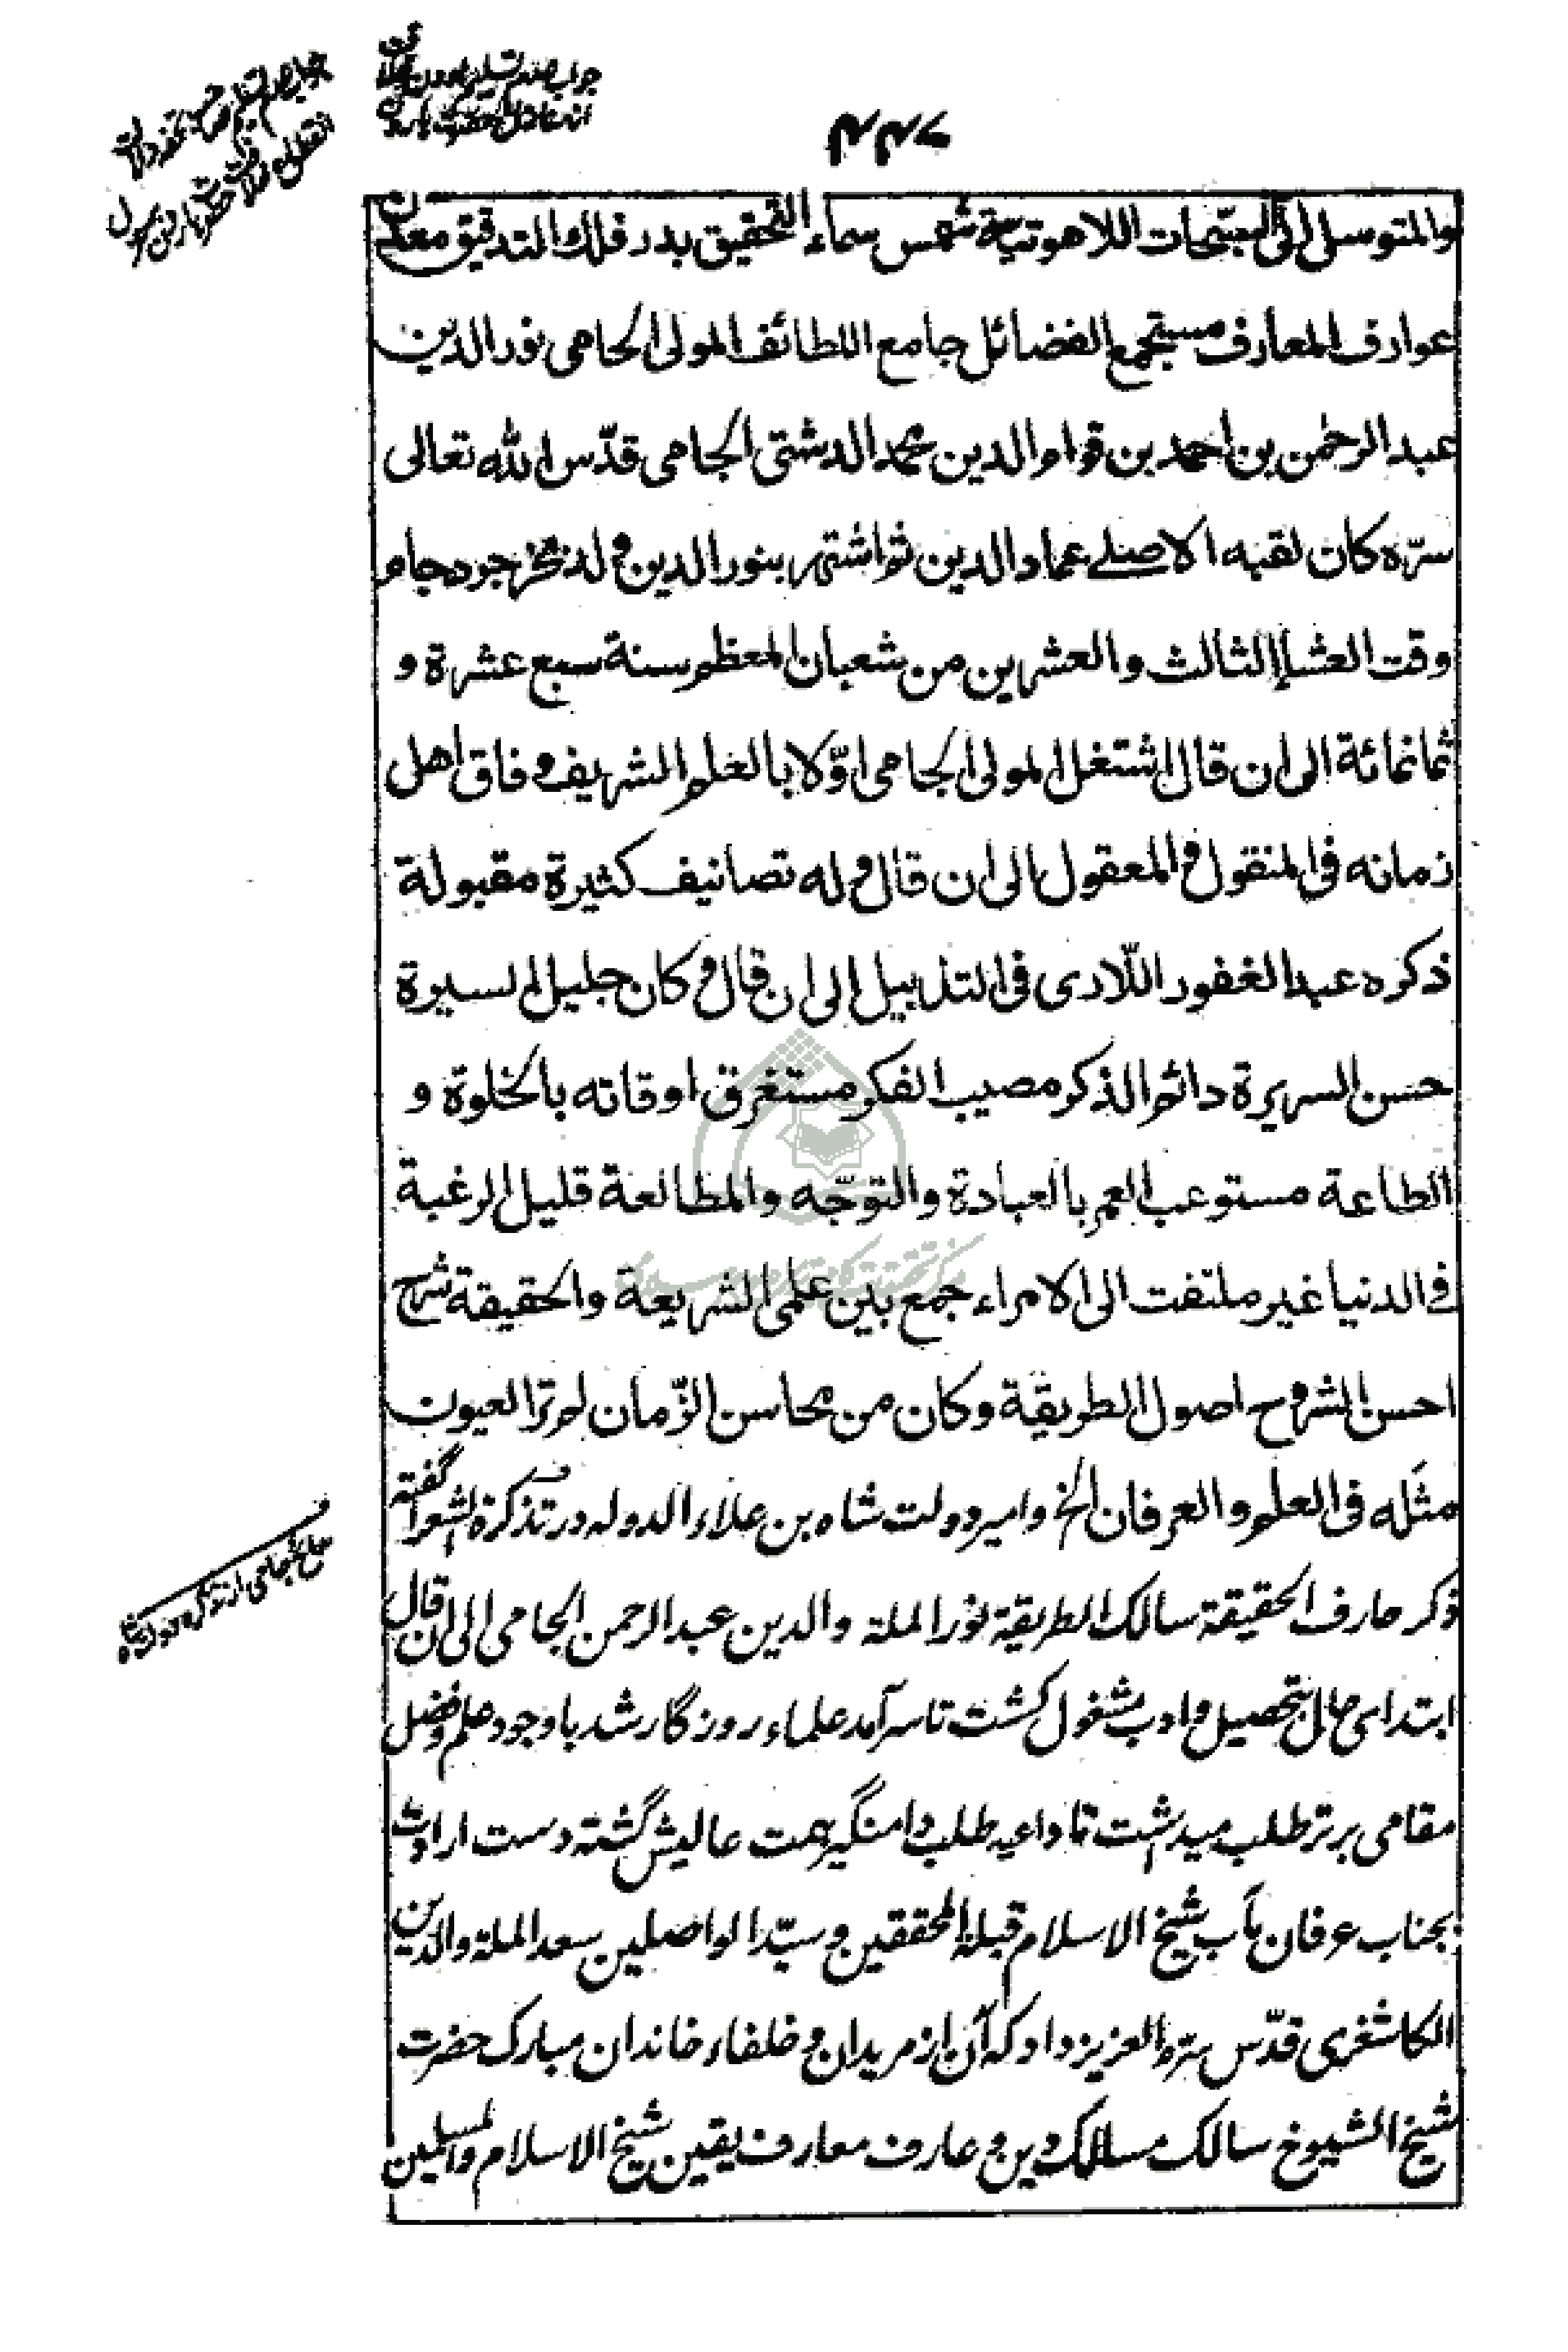 ۲۲۷
والمتوسل الى السبحات اللاهوتية شمس سماء التحقيق بدر فلك التدقيق معدن
عوارف المعارف مستجمع الفضائل جامع اللطائف المولى الجامى نور الدين
عبد الرحمٰن بن احمد بن قوام الدين محمد الدشتى الجامى قدّس الله تعالى
سرّه كان لقبه الاصلے عماد الدين ثم اشتهر بنور الدين ولد بخرجرد جام
وقت العشاء الثالث والعشرين من شعبان المعظم سنة سبع عشرة و
ثمانمائة الى ان قال اشتغل المولى الجامى اوّلا بالعلم الشريف وفاق اهل
زمانه فى المنقول والمعقول الى ان قال وله تصانيف كثيرة مقبولة
ذكره عبد الغفور اللّارى فى التذييل الى ان قال وكان جليل السيرة
حسن السريرة دائم الذكر مصيب الفكر مستغرق اوقاته بالخلوة و
الطاعة مستوعب العمر بالعبادة والتوجّه والمطالعة قليل الرغبة
فى الدنيا غير ملتفت الى الامراء جمع بين علمى الشريعة والحقيقة شرح
احسن الشروح اصول الطريقة وكان من محاسن الزّمان لم تر العيون
مثله فى العلم والعرفان الخ وامير دولت شاه بن علاء الدوله در تذكرة الشعرا گفته
ذكر عارف الحقيقة سالك الطريقة نور الملة والدين عبد الرحمن الجامى الى ان قال
ابتداى حال بتحصيل وادب مشغول گشت تا سرآمد علماء روزگار شد با وجود علم وفضل
مقامى برتر طلب ميداشت تا داعيه طلب دامنگير همت عاليش گشته دست ارادت
بجناب عرفان مآب شيخ الاسلام قبلة المحققين وسيّد الواصلين سعد الملة والدين
الكاشغرى قدّس سرّه العزيز داد كه آن از مريدان وخلفاء خاندان مبارك حضرت
شيخ الشيوخ سالك مسالك دين وعارف معارف يقين شيخ الاسلام والمسلمين